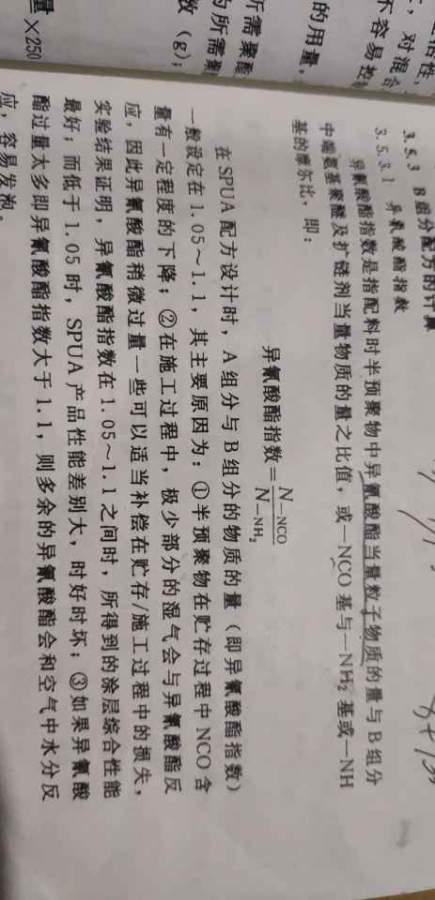 量×250
数（g）；
为所需聚
所需聚醚
的用量，
不容易控
，对混合
活性，
3.5.3 B组分配方的计算
3.5.3.1 异氰酸酯指数
异氰酸酯指数是指配料时半预聚物中异氰酸酯当量粒子物质的量与B组分
中端氨基聚醚及扩链剂当量物质的量之比值，或—NCO基与—NH₂基或—NH
基的摩尔比，即：
异氰酸酯指数=N—NCO/N—NH₂
在SPUA配方设计时，A组分与B组分的物质的量（即异氰酸酯指数）
一般设定在1.05～1.1，其主要原因为：①半预聚物在贮存过程中NCO含
量有一定程度的下降；②在施工过程中，极少部分的湿气会与异氰酸酯反
应，因此异氰酸酯稍微过量一些可以适当补偿在贮存/施工过程中的损失，
实验结果证明，异氰酸酯指数在1.05～1.1之间时，所得到的涂层综合性能
最好；而低于1.05时，SPUA产品性能差别大，时好时坏；③如果异氰酸
酯过量太多即异氰酸酯指数大于1.1，则多余的异氰酸酯会和空气中水分反
应，容易发泡。